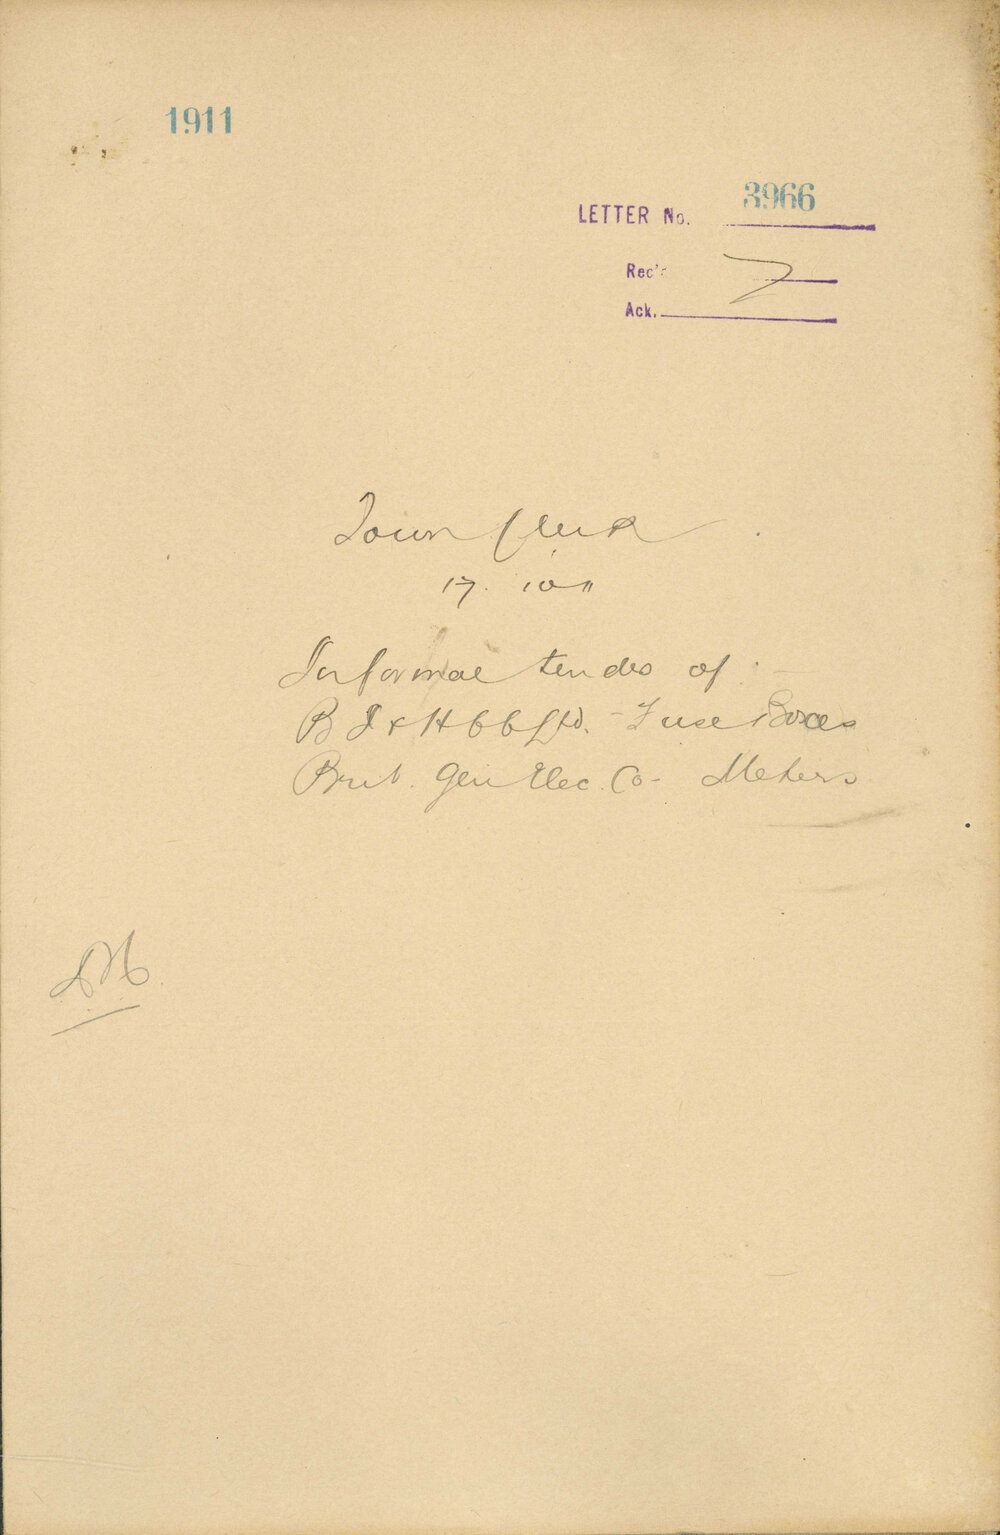 1911
3966
LETTER No.
Rec'd
Ack.
Town Clerk
17. 10 11
Informal tenders of :-
B I & H Ltd. - Fuse Boxes
Brit. Gen Elec. Co - Meters